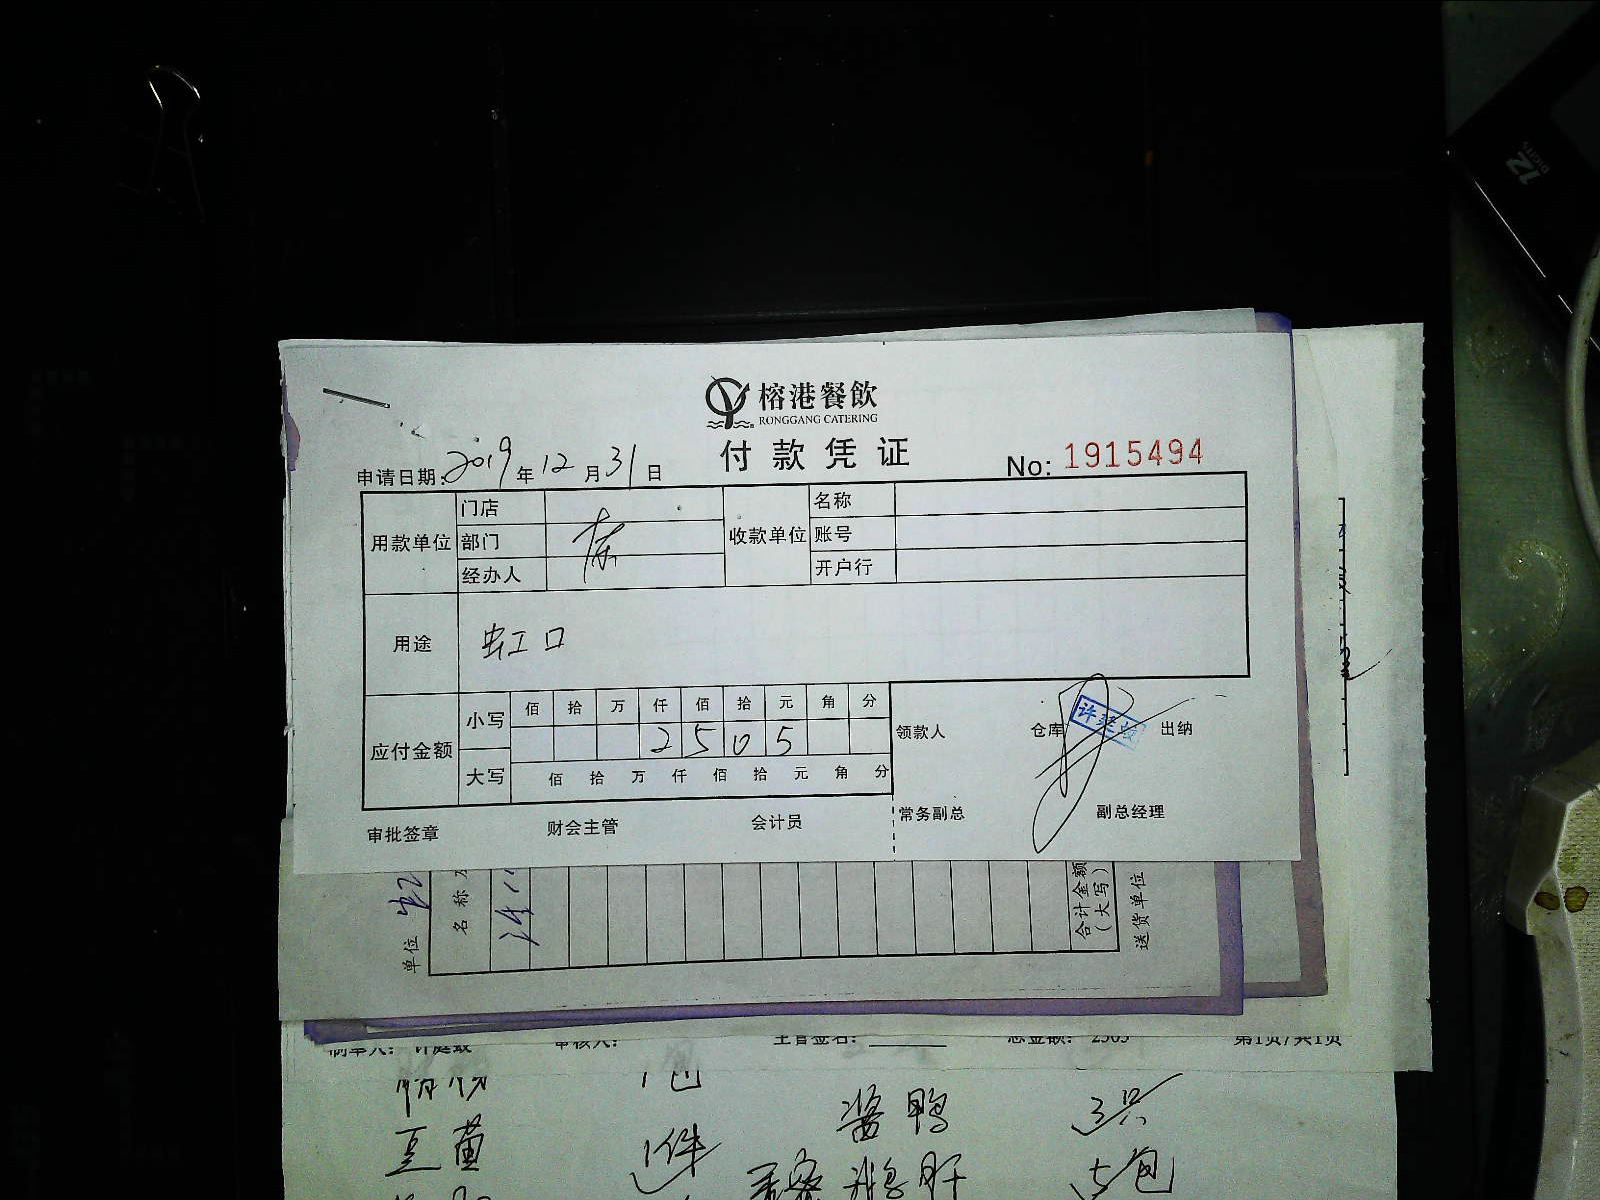 12
DIGITS
榕港餐飲
RONGGANG CATERING
付款凭证
No: 1915494
申请日期: 2019年12月31日
用款单位 门店 收款单位 名称
部门 账号
经办人 开户行
用途 虹口
应付金额 小写 佰 拾 万 仟 佰 拾 元 角 分
2 5 0 5
大写 佰 拾 万 仟 佰 拾 元 角 分
领款人 仓库 出纳
审批签章 财会主管 会计员 常务副总 副总经理
单位
名称
合计金额
(大写)
送货单位
制单人: 审核人: 主管签名: 总金额: 2505 第1页/共1页
酱鸭 3只
1件
5包